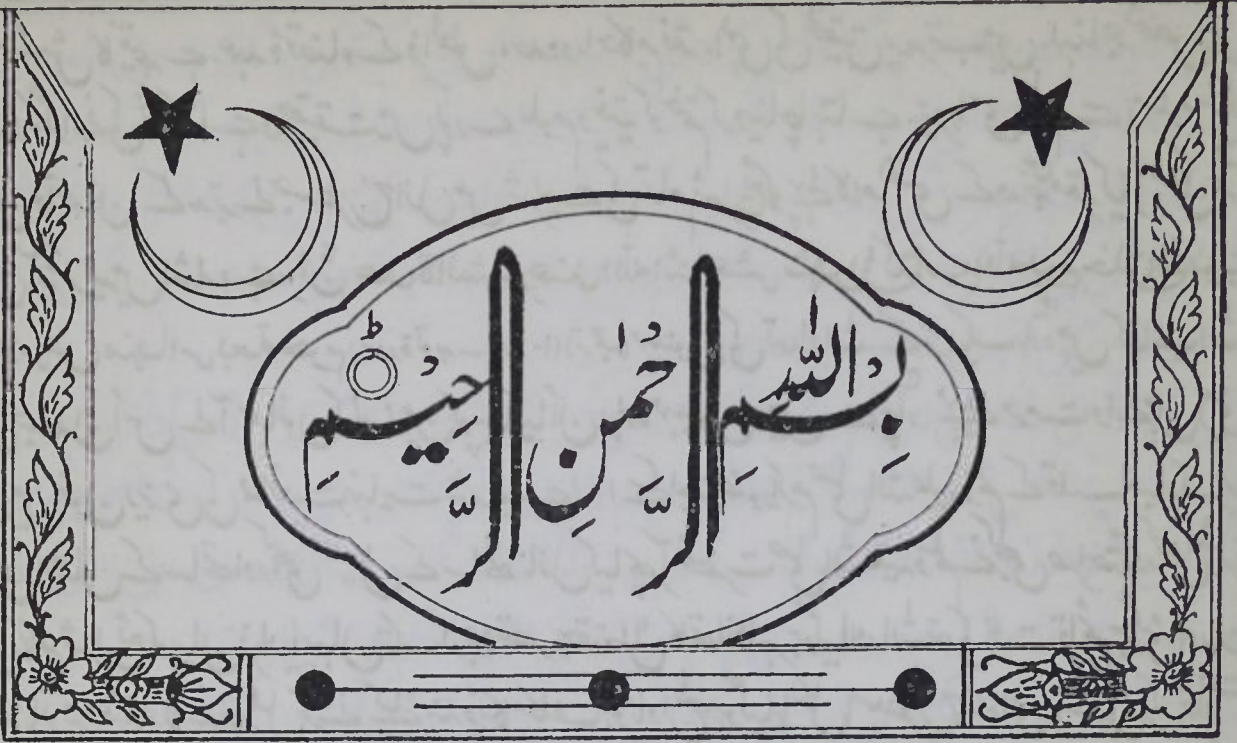 بِسْمِ اللّٰہِ الرَّحْمٰنِ الرَّحِیْمِ ط